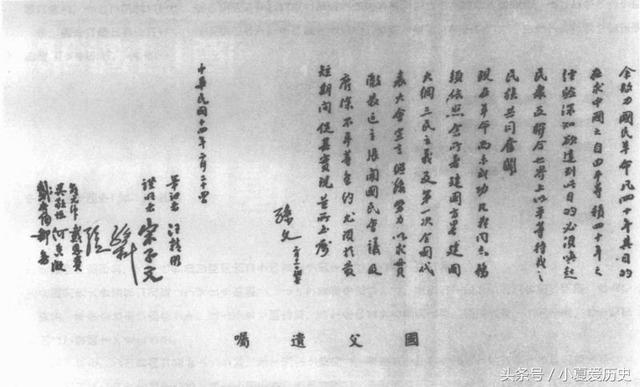 余致力國民革命凡四十年其目的
在求中國之自由平等積四十年之
經驗深知欲達到此目的必須喚起
民眾及聯合世界上以平等待我之
民族共同奮鬭
現在革命尚未成功凡我同志務
須依照余所著建國方略建國
大綱三民主義及第一次全國代
表大會宣言繼續努力以求貫
澈最近主張開國民會議及
廢除不平等條約尤須於最
短期間促其實現是所至囑
孫文
中華民國十四年二月二十四日
筆記者 汪精衛
證明者 宋子文
孫科
邵元沖 戴恩賽
吳敬恆 何香凝
鄒魯
國父遺囑
头条号 / 小夏爱历史